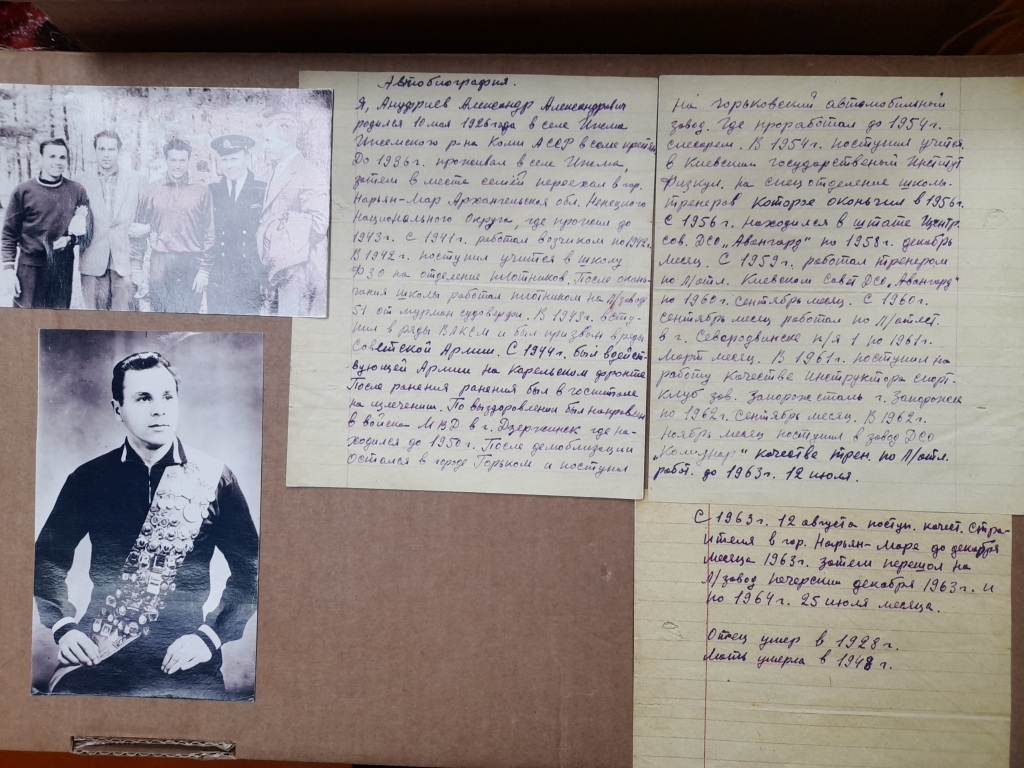 Автобиография.
Я, Ануфриев Александр Александрович
родился 10 мая 1926 года в селе Ижма
Ижемского р-на Коми АССР в семье
До 1936 г. проживал в селе Ижма
затем в месте семьёй переехал в гор.
Нарьян-Мар Архангельской обл. Ненецкого
Национального Округа где прожил до
1943 г. С 1941 г. работал возчиком по 1942 г.
В 1942 г. поступил учится в школу
ФЗО на отделение плотников. После окон-
чания школы работал плотником на
51 от мурман судоверфи. В 1943 г. всту-
пил в ряды ВЛКСМ и был призван в ряды
Советской Армии. С 1944 г. был в дейст-
вующей Армии на Карельском фронте
После ранения ранения был в госпитале
на излечении. По выздоровлении был направлен
в войска МВД в г. Дзержинск где на-
ходился до 1950 г. После демоблизации
остался в городе Горьком и поступил
на горьковский автомобильный
завод. Где проработал до 1954 г.
слесарем. В 1954 г. поступил учится
в Киевский государственый Институт
Физкул. на спец отделение школы
тренеров которое окончил в 1956 г.
С 1956 г. находился в штате Центр.
сов. ДСО „Авангард" по 1958 г. декабрь
месяц. С 1959 г. работал тренером
по Л/атл. Киевском Совет ДСО „Авангард"
по 1960 г. сентябрь месяц. С 1960 г.
сентябрь месяц работал по Л/атлет.
в г. Северодвинске п/я 1 по 1961 г.
Март месяц. В 1961 г. поступил на
работу качестве инструктора спорт.
клуб зав. Запорожсталь г. Запорожск
по 1962 г. сентябрь месяц. В 1962 г.
ноябрь месяц поступил в завод ДСО
качестве трен. по Л/атл.
работ. до 1963 г. 12 июля.
С 1963 г. 12 августа поступ. качест. стро-
ителя в гор. Нарьян-Маре до декабря
месяца 1963 г. затем перешол на
Л/завод печерский декабря 1963 г. и
по 1964 г. 25 июля месяца.
Отец умер в 1928 г.
Мать умерла в 1948 г.